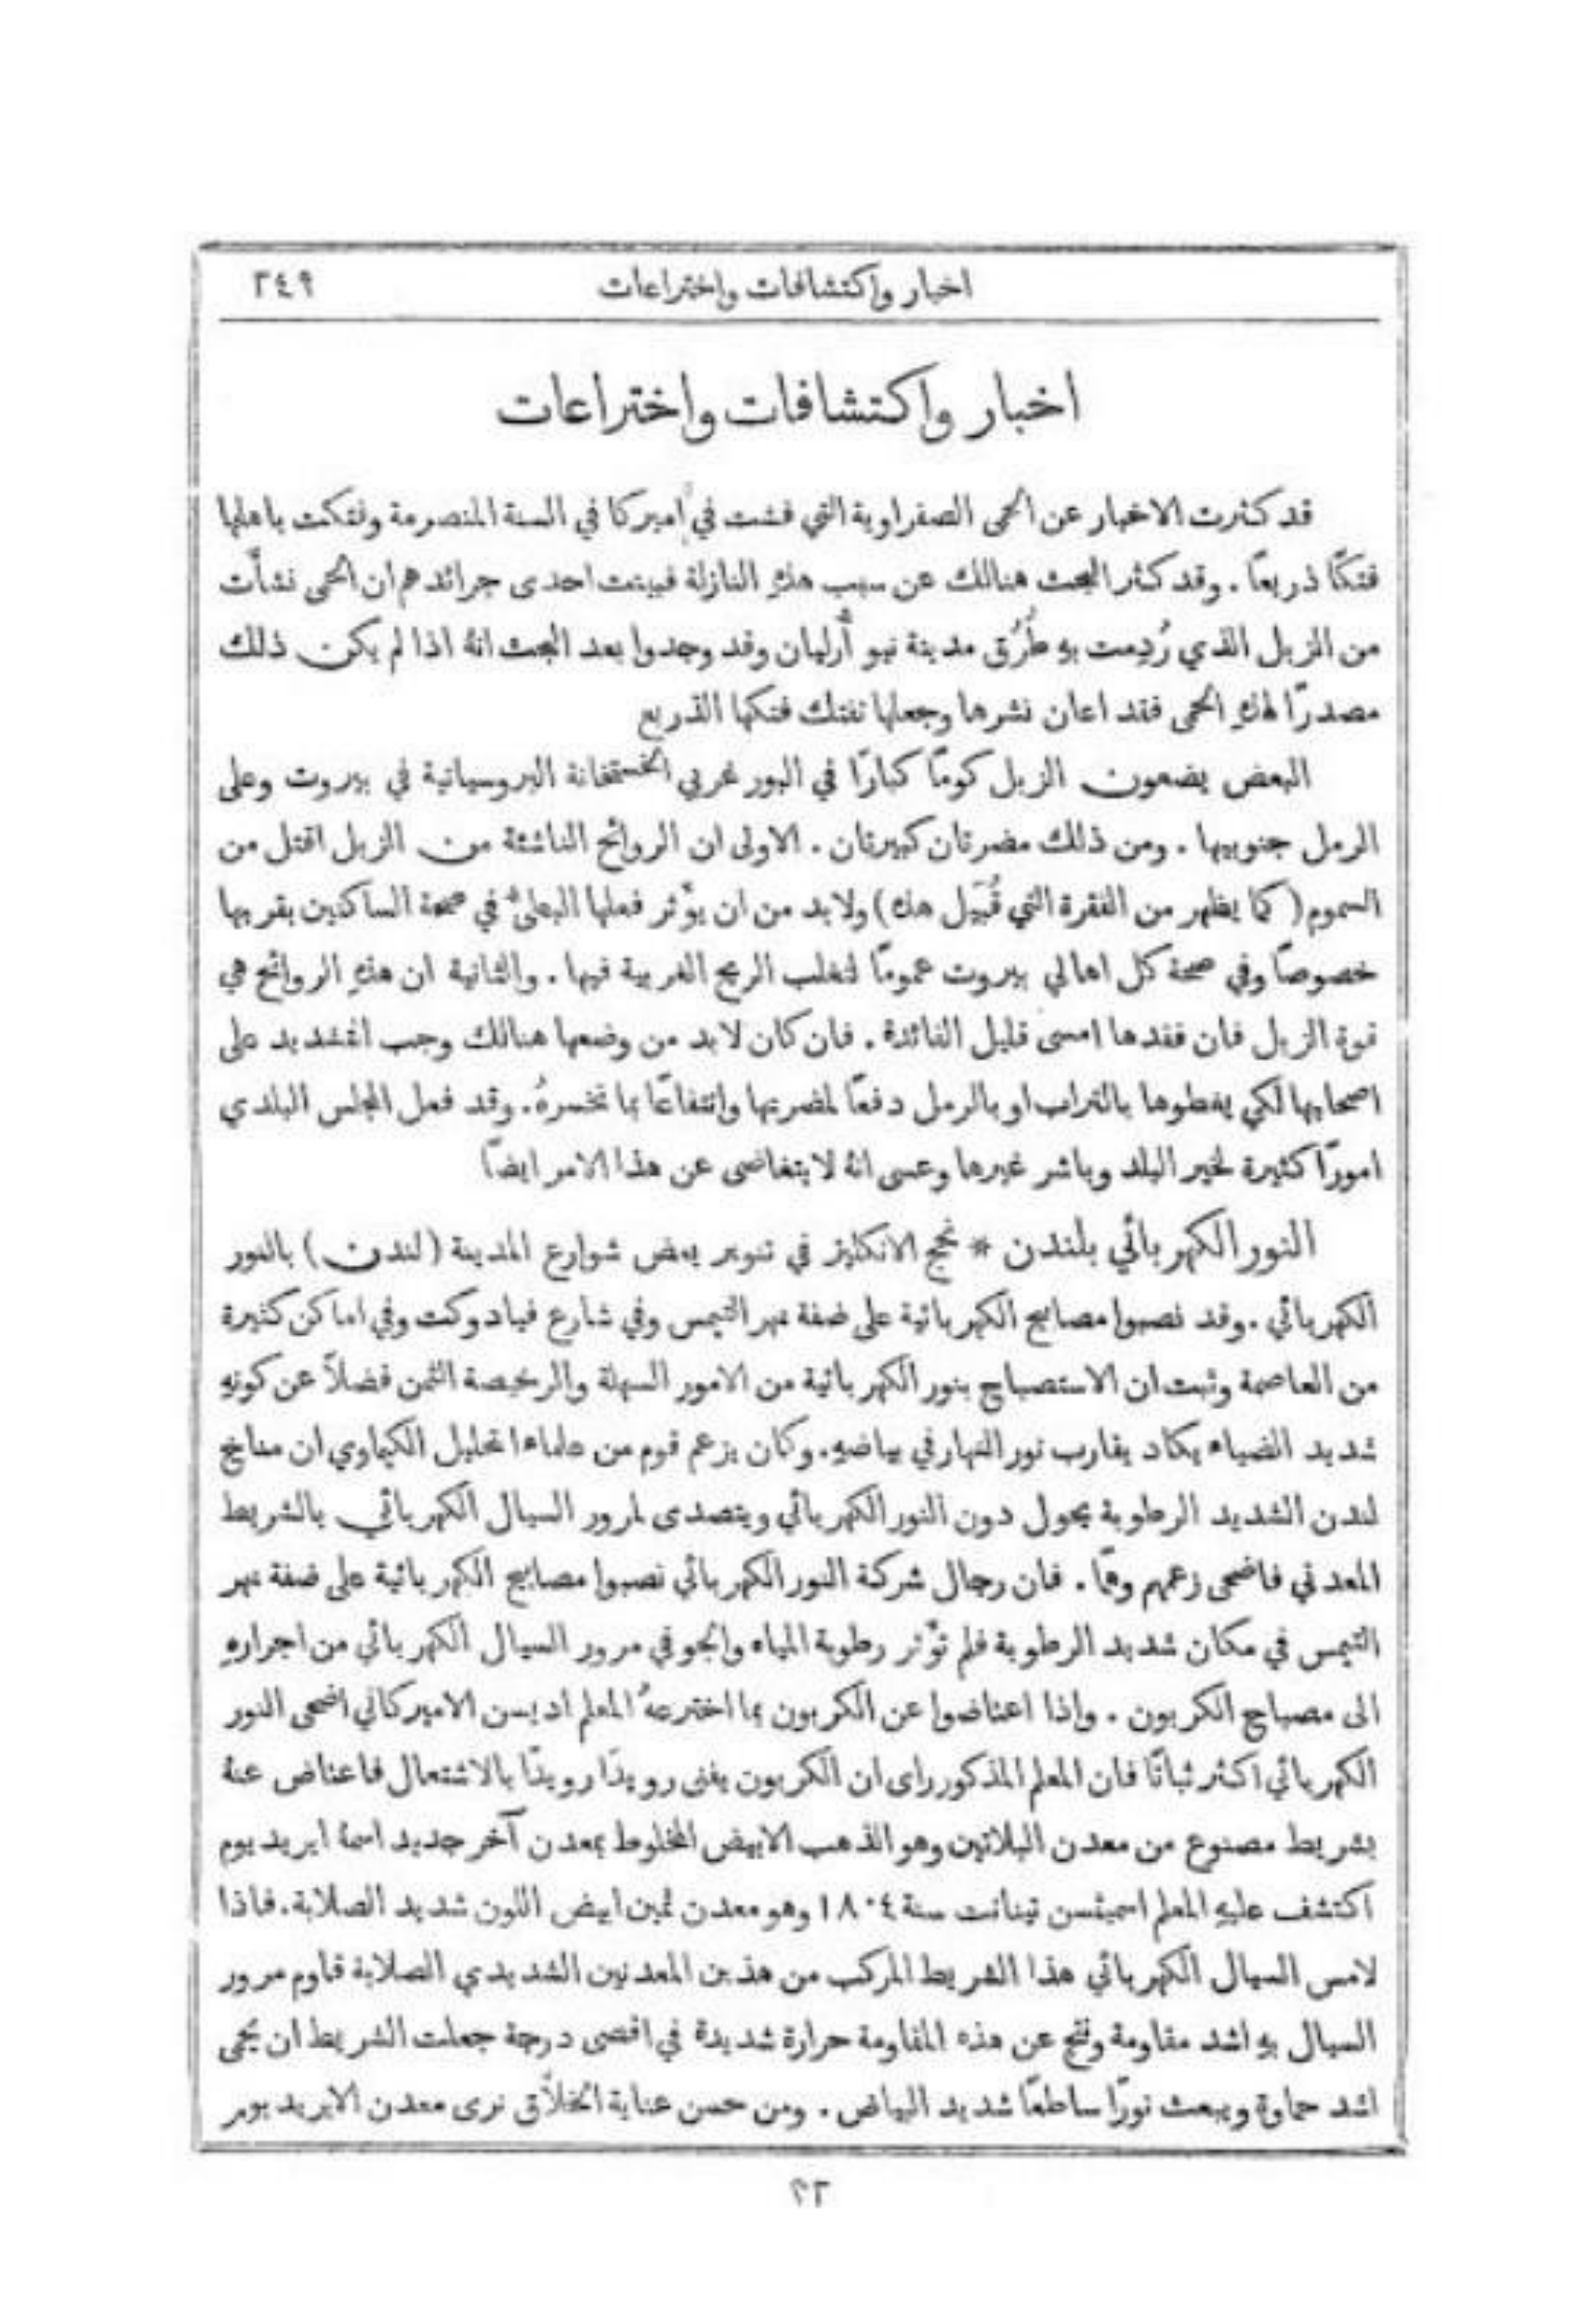 اخبار واكتشافات واختراعات ٢٤٩
اخبار واكتشافات واختراعات
قد كثرت الاخبار عن الحمى الصفراوية التي فشت في اميركا في السنة المنصرمة وفتكت باهلها
فتكًا ذريعًا . وقد كثر البحث هنالك عن سبب هذهِ النازلة فبينت احدى جرائدهم ان الحمى نشأَت
من الزبل الذي رُدِمت بهِ طُرُق مدينة نيو أُرليان وقد وجدوا بعد البحث انهُ اذا لم يكن ذلك
مصدرًا لهذهِ الحمى فقد اعان نشرها وجعلها تفتك فتكها الذريع
البعض يضعون الزبل كومًا كبارًا في البور غربي الخستخانة البروسيانية في بيروت وعلى
الرمل جنوبيها . ومن ذلك مضرتان كبيرتان . الاولى ان الروائح الناشئة من الزبل اقتل من
السموم (كما يظهر من الفقرة التي قُبَيل هذه) ولا بد من ان يؤَثر فعلها البطيءُ في صحة الساكنين بقربها
خصوصًا وفي صحة كل اهالي بيروت عمومًا لتغلب الريح الغربية فيها . والثانية ان هذهِ الروائح هي
قوة الزبل فان فقدها امسى قليل الفائدة . فان كان لا بد من وضعها هنالك وجب التشديد على
اصحابها لكي يغطوها بالتراب او بالرمل دفعًا لمضرتها وانتفاعًا بما تخسرهُ. وقد فعل المجلس البلدي
امورًا كثيرة لخير البلد وباشر غيرها وعسى انهُ لا يتغاضى عن هذا الامر ايضًا
النور الكهربائي بلندن * نجح الانكليز في تنوير بعض شوارع المدينة (لندن) بالنور
الكهربائي . وقد نصبوا مصابيح الكهربائية على ضفة نهر التيمس وفي شارع فيادوكت وفي اماكن كثيرة
من العاصمة وثبت ان الاستصباح بنور الكهربائية من الامور السهلة والرخيصة الثمن فضلًا عن كونهِ
شديد الضياء يكاد يقارب نور النهار في بياضهِ. وكان يزعم قوم من علماء التحليل الكيماوي ان مناخ
لندن الشديد الرطوبة يحول دون النور الكهربائي ويتصدى لمرور السيال الكهربائي بالشريط
المعدني فاضحى زعمهم وهمًا . فان رجال شركة النور الكهربائي نصبوا مصابيح الكهربائية على ضفة نهر
التيمس في مكان شديد الرطوبة فلم تؤَثر رطوبة المياه والجو في مرور السيال الكهربائي من اجرارهِ
الى مصباح الكربون . واذا اعتاضوا عن الكربون بما اخترعهُ المعلم اديسن الاميركاني اضحى النور
الكهربائي اكثر ثباتًا فان المعلم المذكور راى ان الكربون يفنى رويدًا رويدًا بالاشتعال فاعتاض عنهُ
بشريط مصنوع من معدن البلاتين وهو الذهب الابيض المخلوط بمعدن آخر جديد اسمهُ ايريديوم
اكتشف عليهِ المعلم اسميثسن تينانت سنة ١٨٠٤ وهو معدن ثمين ابيض اللون شديد الصلابة. فاذا
لامس السيال الكهربائي هذا الشريط المركب من هذين المعدنين الشديدي الصلابة قاوم مرور
السيال بهِ اشد مقاومة ونتج عن هذه المقاومة حرارة شديدة في اقصى درجة جعلت الشريط ان يحمى
اشد حماوة ويبعث نورًا ساطعًا شديد البياض . ومن حسن عناية الخلاَّق نرى معدن الايريديوم
٣٢